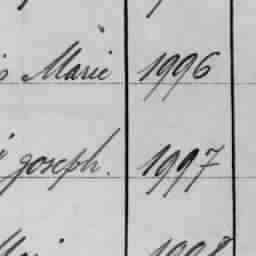 Marie 1996
joseph. 1997
1998